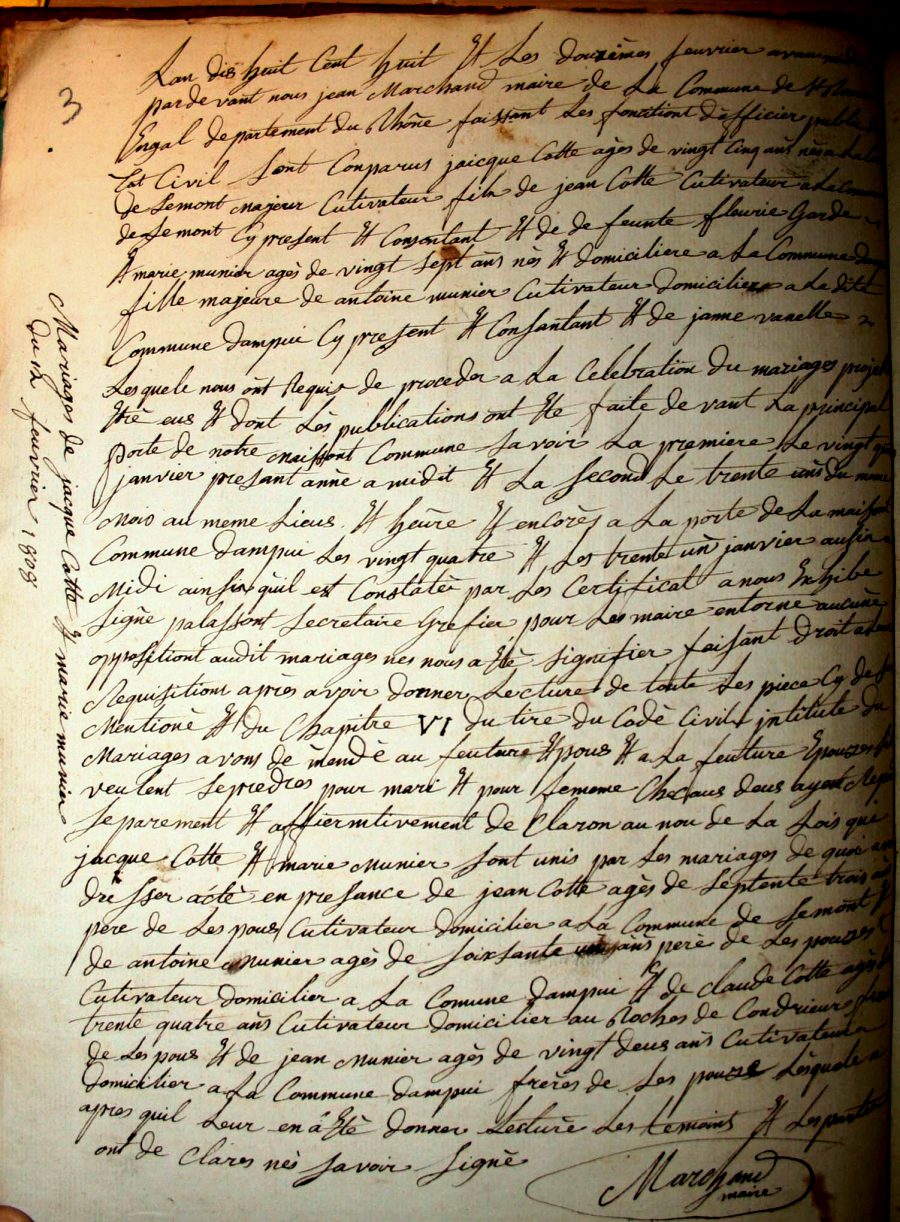 3
Mariages de jacque Cotte Et marie munier
Du 12 feuvrier 1808
Lan dis huit Cent huit Et Les douxièmes feuvrier avant midi
parde vant nous jean Marchand maire de La Commune de St
Engal departement du Rhône faissant Les fonctiont d'afficier public
Êat Civil Sont Conparus jaicque Cotte agès de vingt Cinq ans nès a La
de Semont majeur Cutivateur fils de jean Cotte Cutivateur a La Comm
de Semont Cy present Et Consantant Et de de feunte fleurie Garde
Et marie munier agès de vingt Sept ans nès Et domiciliere a La Commune dam
fille majeure de antoine munier Cutivateur domiciliere a La ditte
Commune dampui Cy present Et Consantant Et de janne vanelle
Lesquele nous ònt Requis de proceder a La Celebration Du mariages projet
Etrè eus Et dont Lès publications ont Ete faite de vant La principal
porte de notre maissont Commune Savoir La premiere Le vingt
janvier presant annè a midit Et La Second Le trente uns du meme
Mois au meme Lieus Et heùre Et encorès a La porte de La maisont
Commune Dampui Les vingt quatre Et Les trente un janvier ausi a
Midi ainsix quil est Constatée par Les Certificat a nous Exhibe
Signè palassont Secretaire Grefier pour Les maire entorne aucune
oppositiont audit mariages nes nous a Etè Signifier faisant Droit a Leur
Requisitions après avoir donner Lecture de toute Les piece Cy de Su
Mentionè Et du Chapitre VI du tire du Codè Civil intitule du
Mariages avons de mendè au feuture Epous Et a La feuture Epousse Sil
veulent Se predres pour mari Et pour femome Checaus deus ayent Repon
Separement Et affiermtivement de Claron au nou de La Lois que
jacque Cotte Et marie Munier Sont unis par Les mariages de quoi avon
dresser actè en presance de jean Cotte agès de Septente trois ans
pere de Les pous Cutivateur domicilier a La Commune de Semont Et
de antoine Munier agès de Soixsante ans pere de Les pousses
Cutivateur domicilier a La Comune Dampui Et de Claude Cotte agès de
trente quatre ans Cutivateur domicilier au Roches de Condrieus
de Les pous Et de jean Munier agès de vingt deus ans Cutivateur
domicilier a La Commune dampui frères de Les pousse Lèsquele
apres quil Leur en a Etè donner Lecture Les temoins Et Les parties
ont de Clares nès Savoir Signè
Marchand
maire